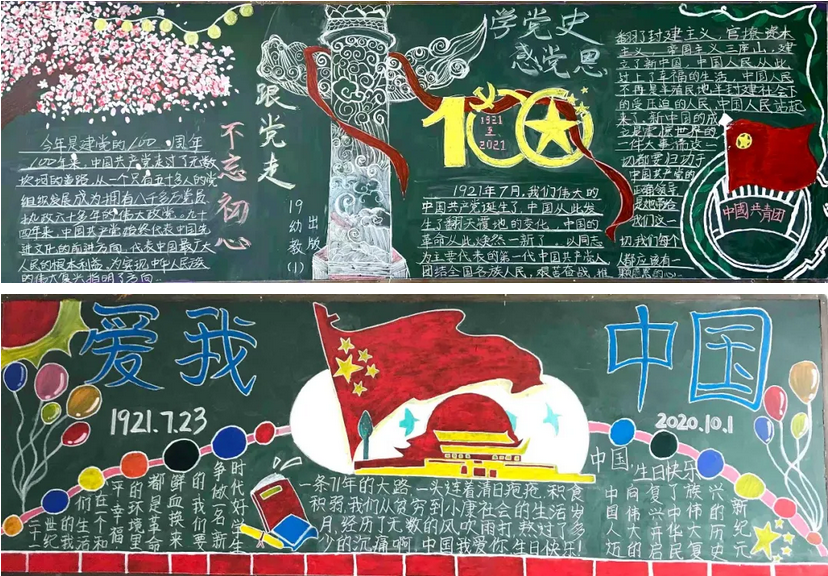 学党史
感党恩
跟党走
不忘初心
今年是建党的100周年
100年来，中国共产党走过了无数
坎坷的道路，从一个只有五十多人的党
组织发展成为拥有八千多万党员
执政六十多年的伟大政党。九十
四年来，中国共产党始终代表中国先
进文化的前进方向，代表中国最广大
人民的根本利益，为实现中华人民族
的伟大复兴指明了方向
19幼教(1)
出版
100
1921
至
2021
1921年7月，我们伟大的
中国共产党诞生了，中国从此发
生了翻天覆地的变化，中国的
革命从此焕然一新了，以同志
为主要代表的第一代中国共产党人
团结全国各族人民，艰苦奋战，推
翻了封建主义、官僚资本
主义、帝国主义三座山，建
立了新中国，中国人民从此
过上了幸福的生活，中国人民
不再是半殖民地半封建社会下
的受压迫的人民，中国人民站起
来了，新中国的成
立是震惊世界的
一件大事，而这一
切都要归功于
中国共产党的
正确领导
是她带给
我们这一
切，我们每个
人都应该有一
颗感恩的心
中國共青团
爱我
中国
1921.7.23
2020.10.1
时代好学生
争做一名新
的我们要
鲜血换来
都是革命
的环境里
平个幸福
们在和
的生活
二十一世纪我
一条71年的大路，一头连着清日疮疮，积食
积弱，我们从贫穷到小康社会的生活岁
月，经历了无数的风吹雨打，熬过了多
少的沉痛啊！中国我爱你，生日快乐！
中国，生日快乐
中国人民
向伟大的
复兴开启
了中华民
族伟大复
兴的历史
新纪元